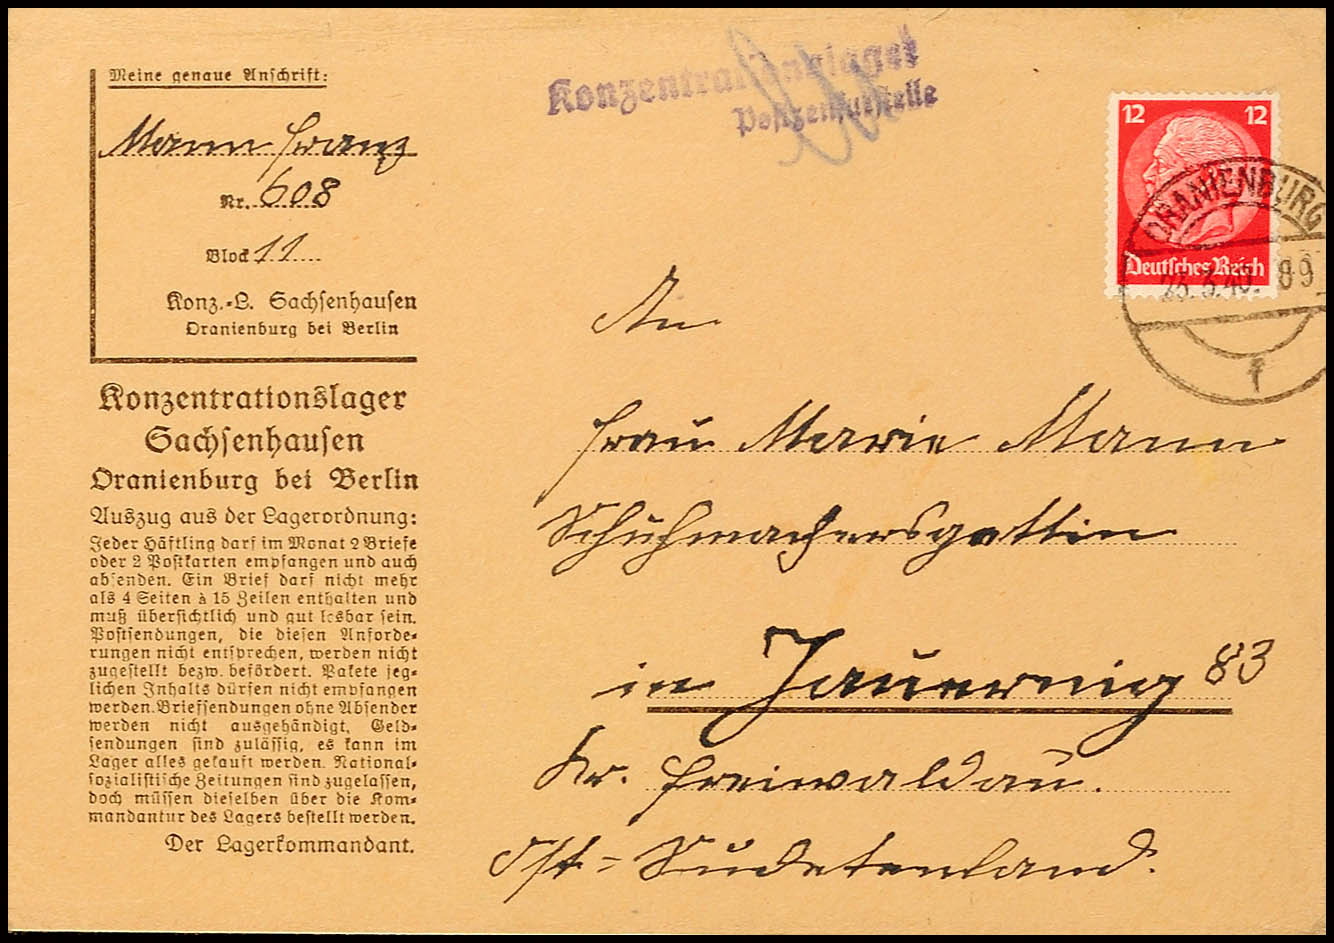 Meine genaue Anschrift:
Mann Franz
Nr. 608
Block 11
Konz.-L. Sachsenhausen
Oranienburg bei Berlin
Konzentrationslager
Sachsenhausen
Oranienburg bei Berlin
Auszug aus der Lagerordnung:
Jeder Häftling darf im Monat 2 Briefe
oder 2 Postkarten empfangen und auch
absenden. Ein Brief darf nicht mehr
als 4 Seiten à 15 Zeilen enthalten und
muß übersichtlich und gut lesbar sein.
Postsendungen, die diesen Anforde-
rungen nicht entsprechen, werden nicht
zugestellt bezw. befördert. Pakete jeg-
lichen Inhalts dürfen nicht empfangen
werden. Briefsendungen ohne Absender
werden nicht ausgehändigt. Geld-
sendungen sind zulässig, es kann im
Lager alles gekauft werden. National-
sozialistische Zeitungen sind zugelassen,
doch müssen dieselben über die Kom-
mandantur des Lagers bestellt werden.
Der Lagerkommandant.
Konzentrationslager
Postzensurstelle
12 12
Deutsches Reich
ORANIENBURG
23.3.40. 89
f
An
Frau Marie Mann
Schuhmachersgattin
in Jauernig 83
Kr. Freiwaldau.
Ost-Sudetenland.